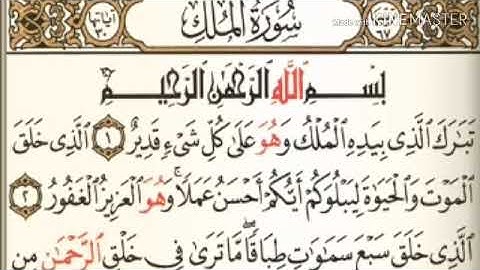 آياتها ٣٠
سُورَةُ المُلْكِ
٦٧
Made with KINEMASTER
بِسْمِ اللَّهِ الرَّحْمَٰنِ الرَّحِيمِ
تَبَارَكَ الَّذِي بِيَدِهِ الْمُلْكُ وَهُوَ عَلَىٰ كُلِّ شَيْءٍ قَدِيرٌ ١ الَّذِي خَلَقَ
الْمَوْتَ وَالْحَيَوٰةَ لِيَبْلُوَكُمْ أَيُّكُمْ أَحْسَنُ عَمَلًا ۚ وَهُوَ الْعَزِيزُ الْغَفُورُ ٢
الَّذِي خَلَقَ سَبْعَ سَمَٰوَٰتٍ طِبَاقًا ۖ مَّا تَرَىٰ فِي خَلْقِ الرَّحْمَٰنِ مِن